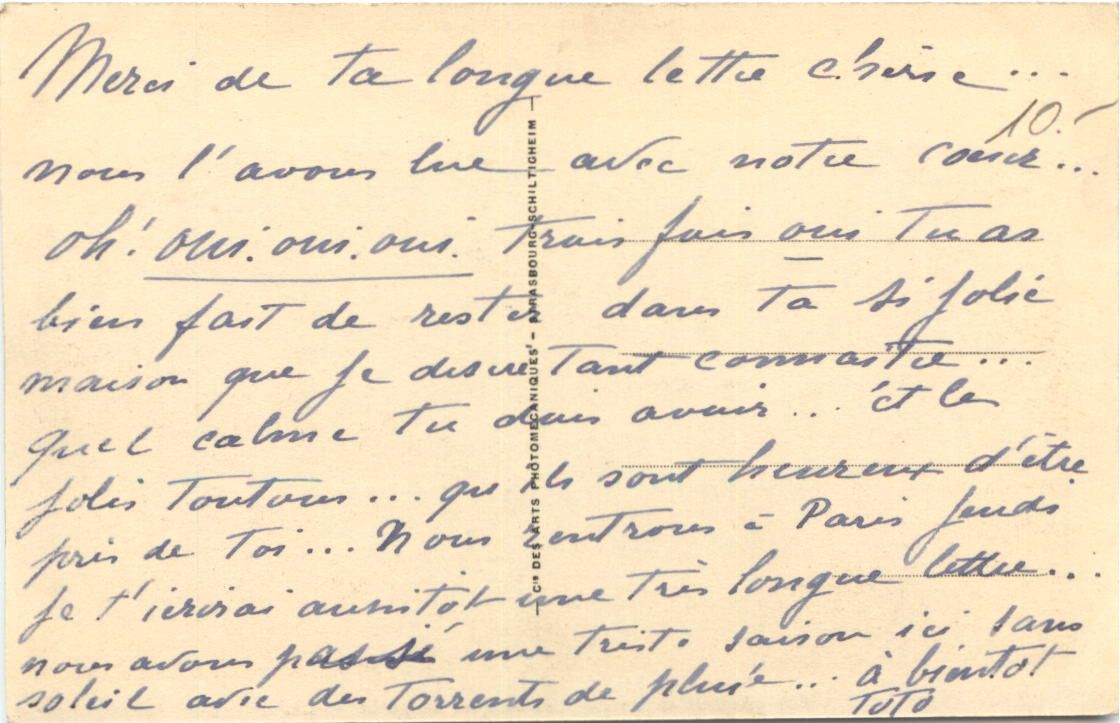 Merci de ta longue lettre chérie...
10.-
nous l'avons lue avec notre cœur...
oh! oui. oui. oui. trois fois oui tu as
bien fait de rester dans ta si jolie
maison que je desire tant connaitre...
quel calme tu dois avoir... et les
jolis toutous... qu'ils sont heureux d'être
près de toi... Nous rentrons à Paris jeudi
je t'écrirai aussitôt une très longue lettre...
nous avons passé une triste saison ici sans
soleil avec des torrents de pluie... à bientôt
Toto
Cie DES ARTS PHOTOMÉCANIQUES - STRASBOURG-SCHILTIGHEIM